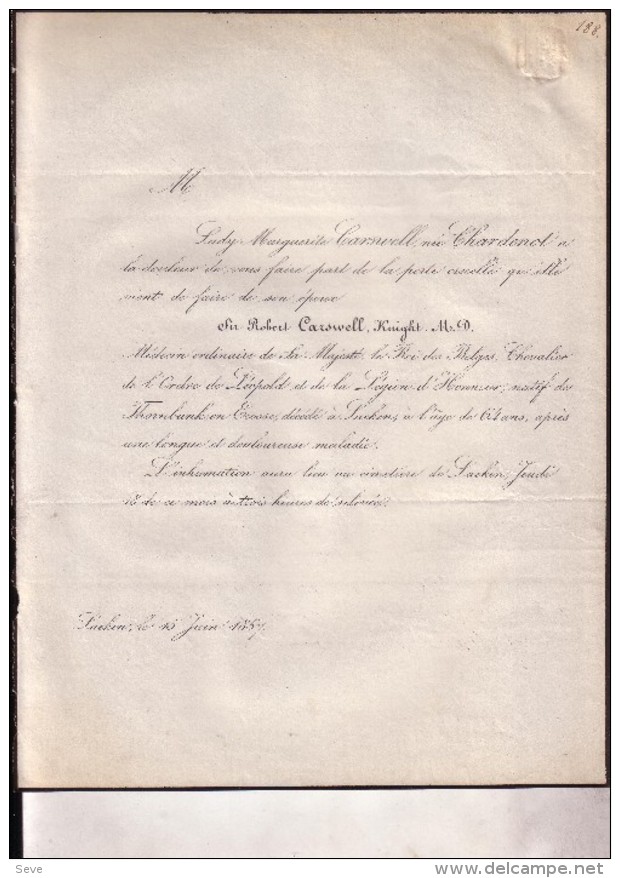 188.
M
Lady Marguerite Carswell, née Chardenot a
la douleur de vous faire part de la perte cruelle qu'elle
vient de faire de son époux
Sir Robert Carswell, Knight. M.D.
Médecin ordinaire de Sa Majesté le Roi des Belges, Chevalier
de l'Ordre de Léopold et de la Légion d'Honneur, natif de
Thornbank en Ecosse, décédé à Laeken, à l'âge de 64 ans, après
une longue et douloureuse maladie.
L'inhumation aura lieu au cimetière de Laeken, Jeudi
18 de ce mois à trois heures de relevée.
Laeken, le 15 Juin 1857.
Seve
www.delcampe.net